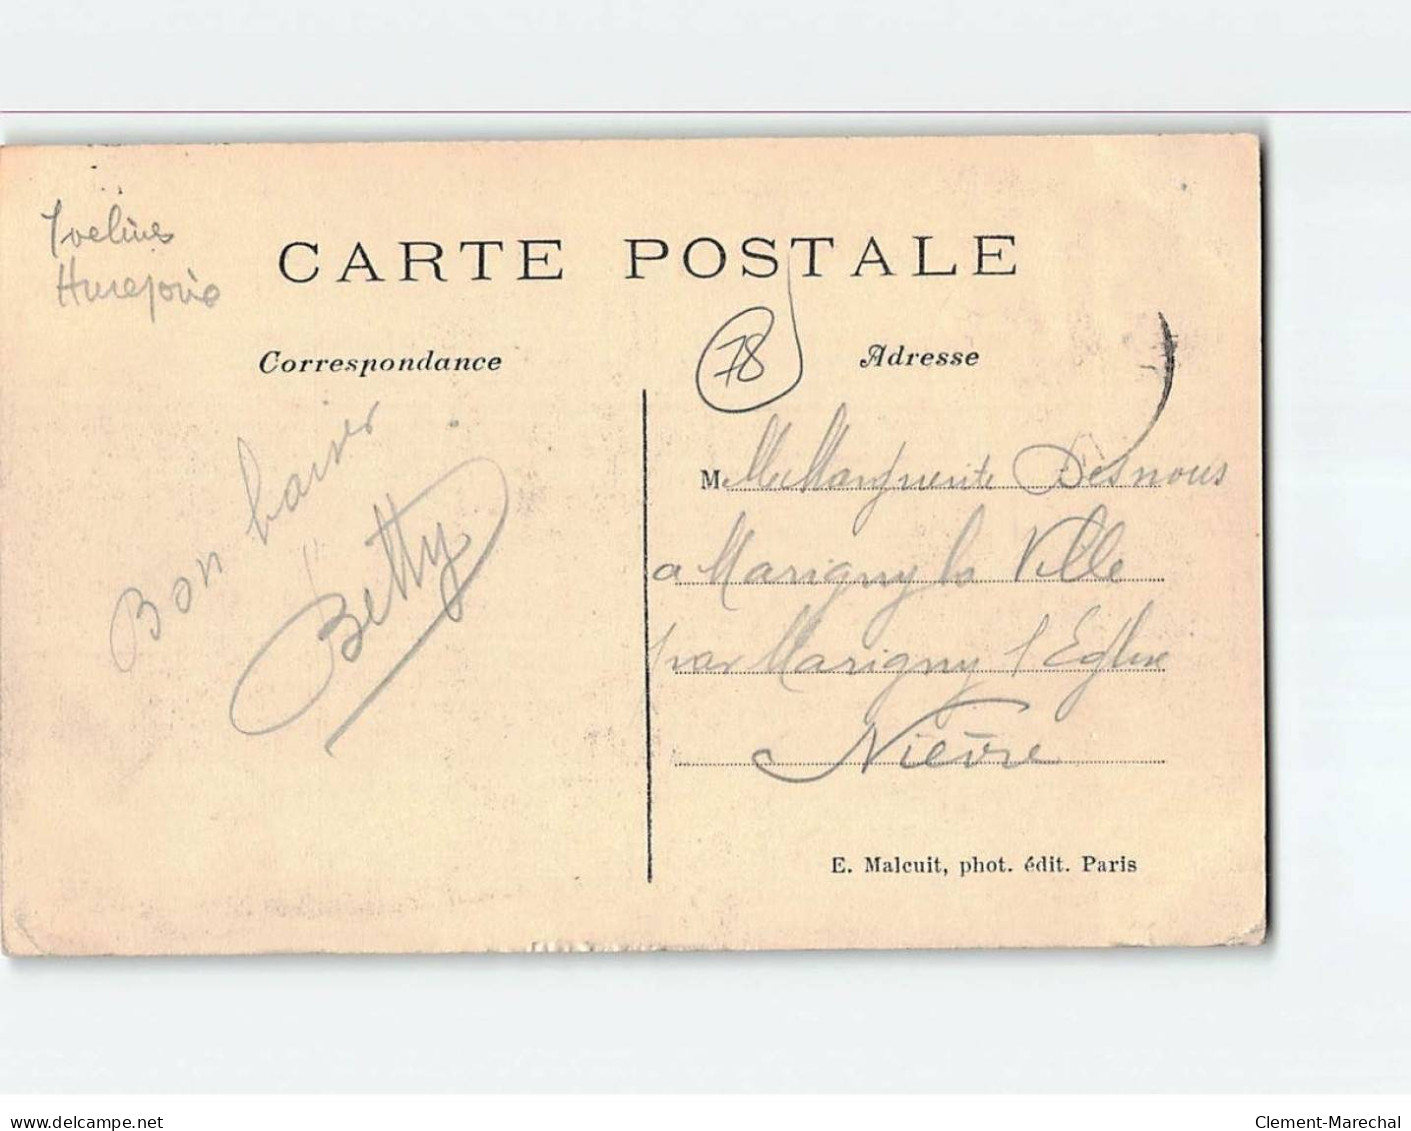 Yvelines
CARTE POSTALE
Correspondance
78
Adresse
Bon baiser
Betty
M elle Marguerite Desnous
a Marigny la Ville
par Marigny l'Eglise
Nièvre
E. Malcuit, phot. édit. Paris
www.delcampe.net
Clement-Marechal